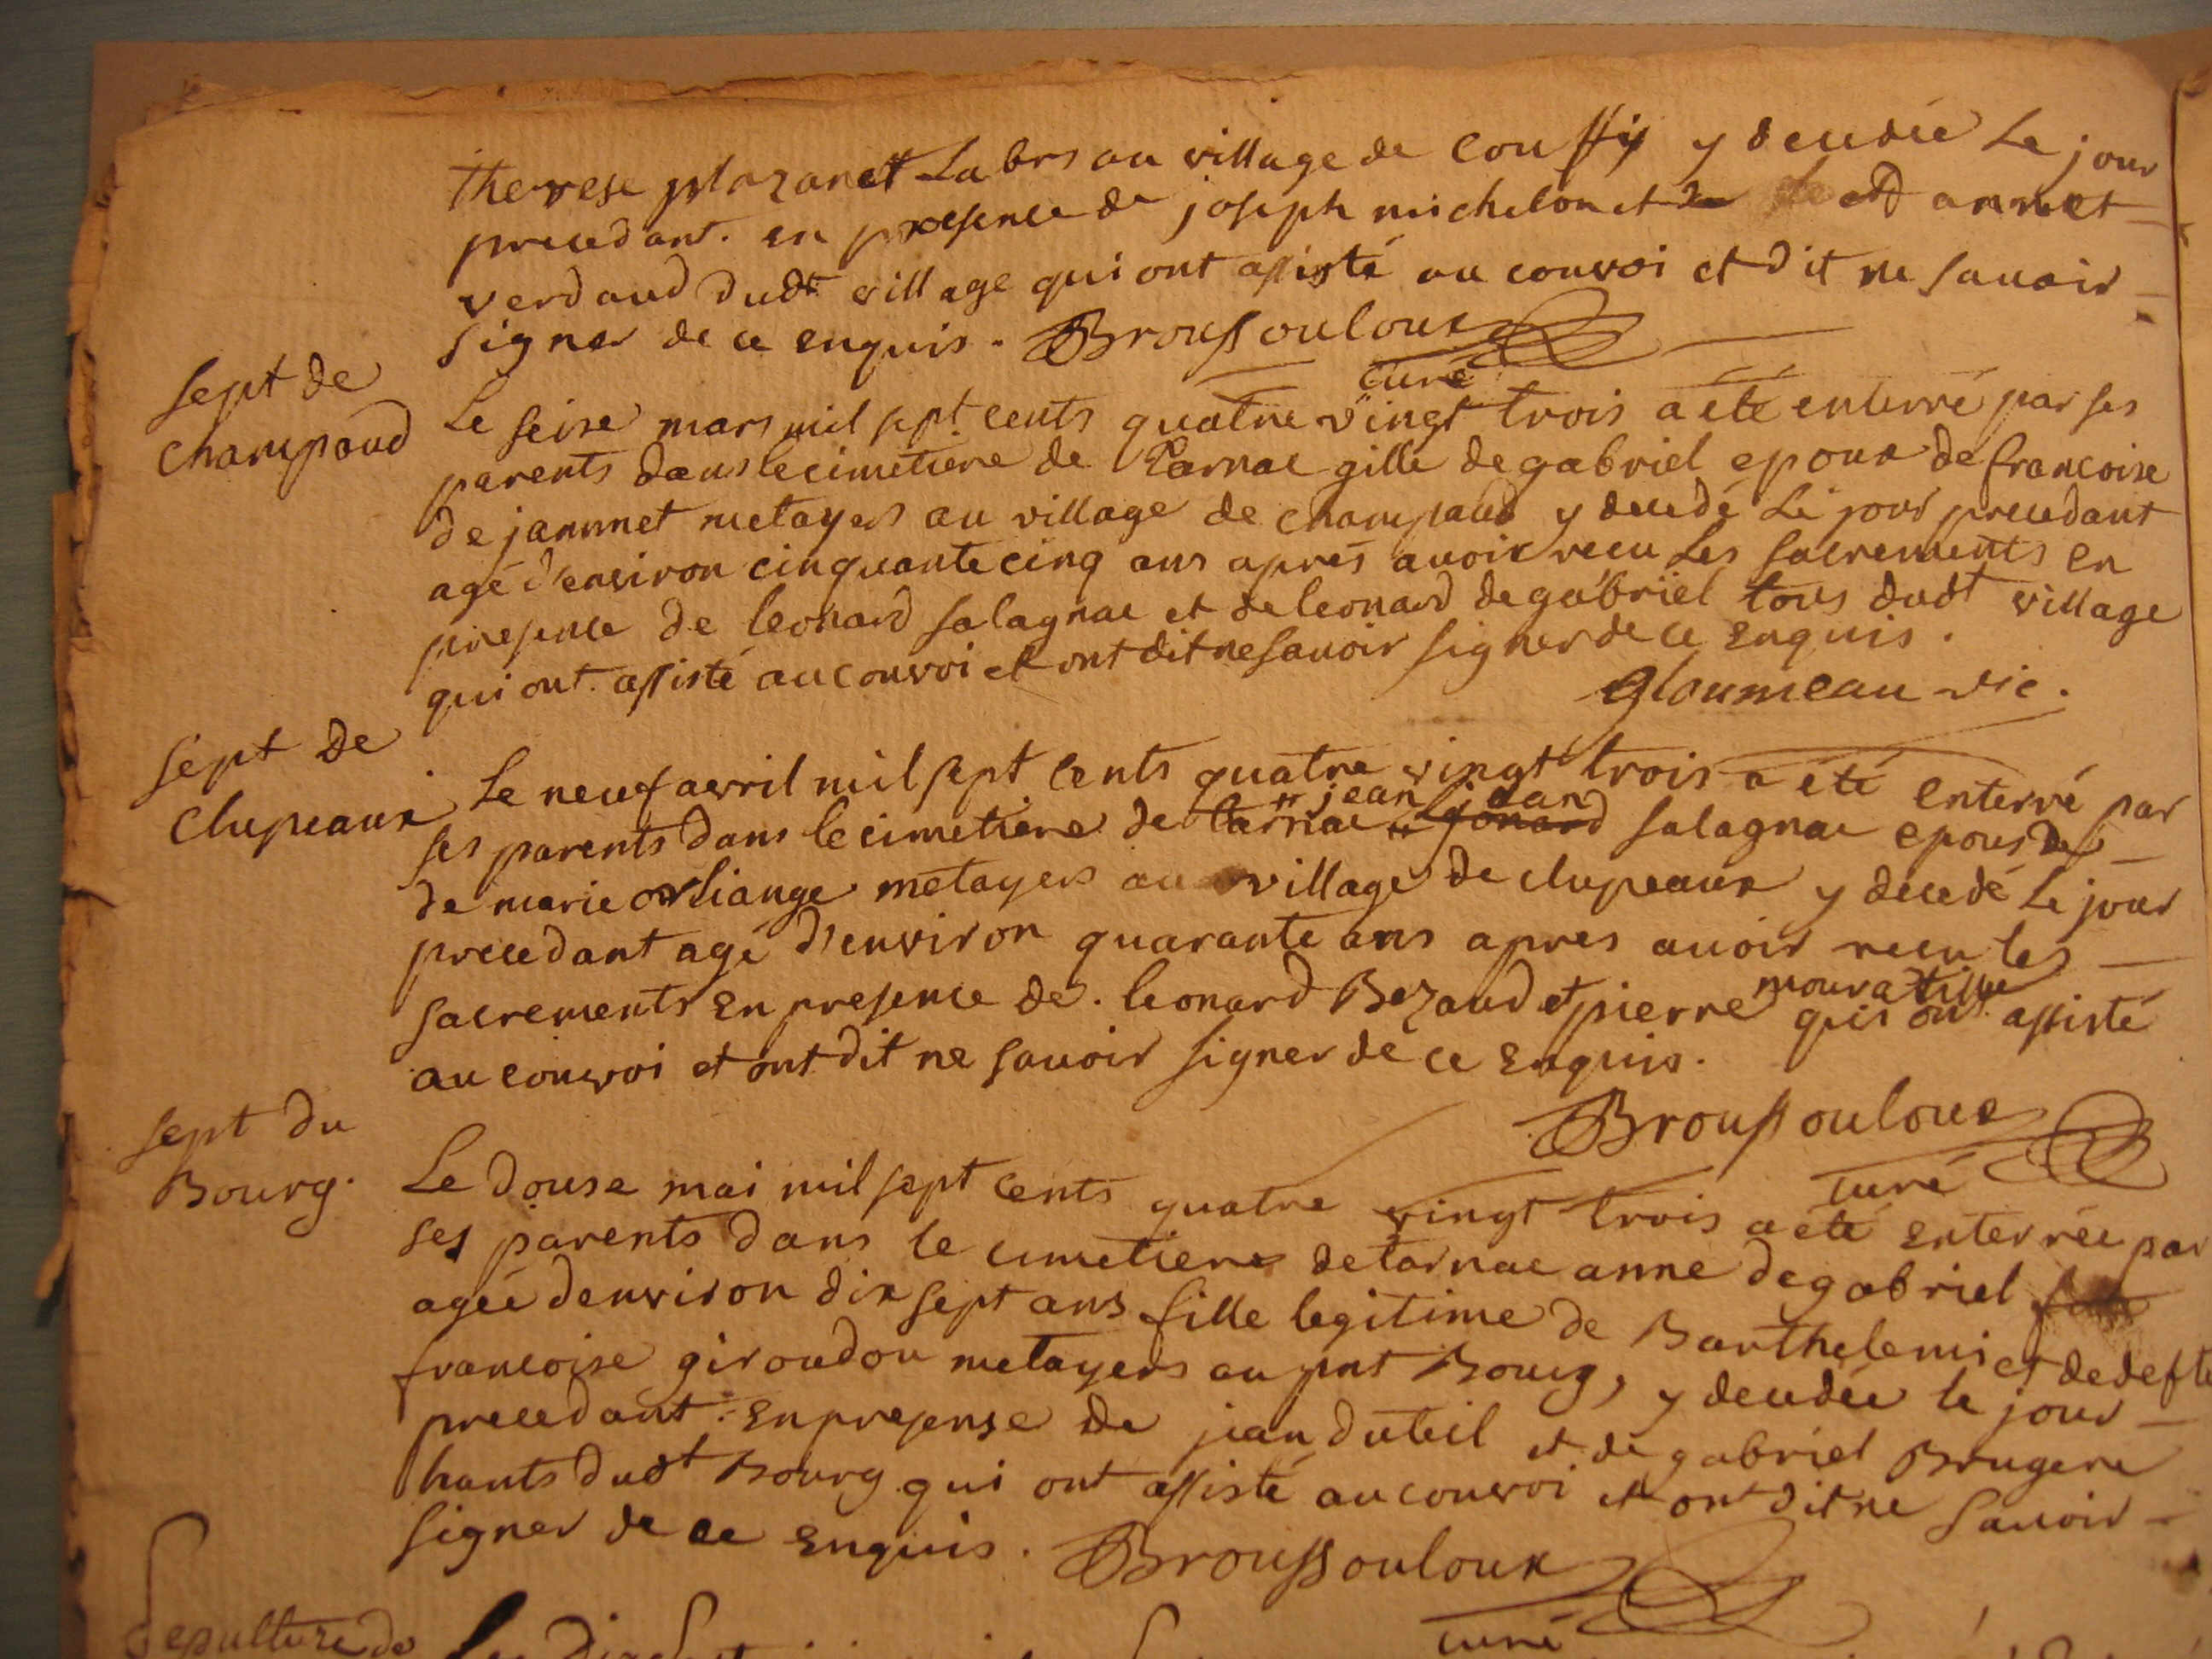 therese plazanet Labrs au village de Couffy y decedée Le jour
precedant. en presence de joseph michelon et annet
verdaud dudt village qui ont assisté au convoi et dit ne sauoir
signer de ce enquis. Broussouloux
curé
sept de
Champaud
Le seise mars mil sept cents quatre vingt trois a été enterré par ses
parents dans le cimetiere de Tarnac gille degabriel epoux de francoise
dejammet metayers au village de champaud y decedé Le jour precedant
agé d'environ cinquante cinq ans aprés auoir recu Les sacrements en
presence de leonard salagnac et de leonard degabriel tous dudt village
qui ont assisté au convoi et ont dit ne sauoir signer de ce enquis.
Gloumeau vic.
sept de
Clupeaux
Le neuf avril mil sept cents quatre vingt trois a été enterré par
ses parents dans le cimetiere de tarnac jean leonard jean salagnac epous de
de marie orliange metayers au village de clupeaux y decedé Le jour
precedant agé d'environ quarante ans apres auoir recu les
sacrements en presence de leonard Bezaud et pierre mouratille qui ont assisté
au convoi et ont dit ne sauoir signer de ce enquis.
Broussouloux
curé
sept du
Bourg.
Le douse mai mil sept cents quatre vingt trois a eté enterrée par
ses parents dans le cimetiere de tarnac anne degabriel
agée denviron dix sept ans fille legitime de Barthelemi et de defte
francoise giroudon metayers au pnt Bourg, y decedée le jour
precedant. en presense de jean duteil et de gabriel Brugere
hants dudt Bourg qui ont assisté au convoi et ont dit ne sauoir
signer de ce enquis. Broussouloux
curé
Sepulture de